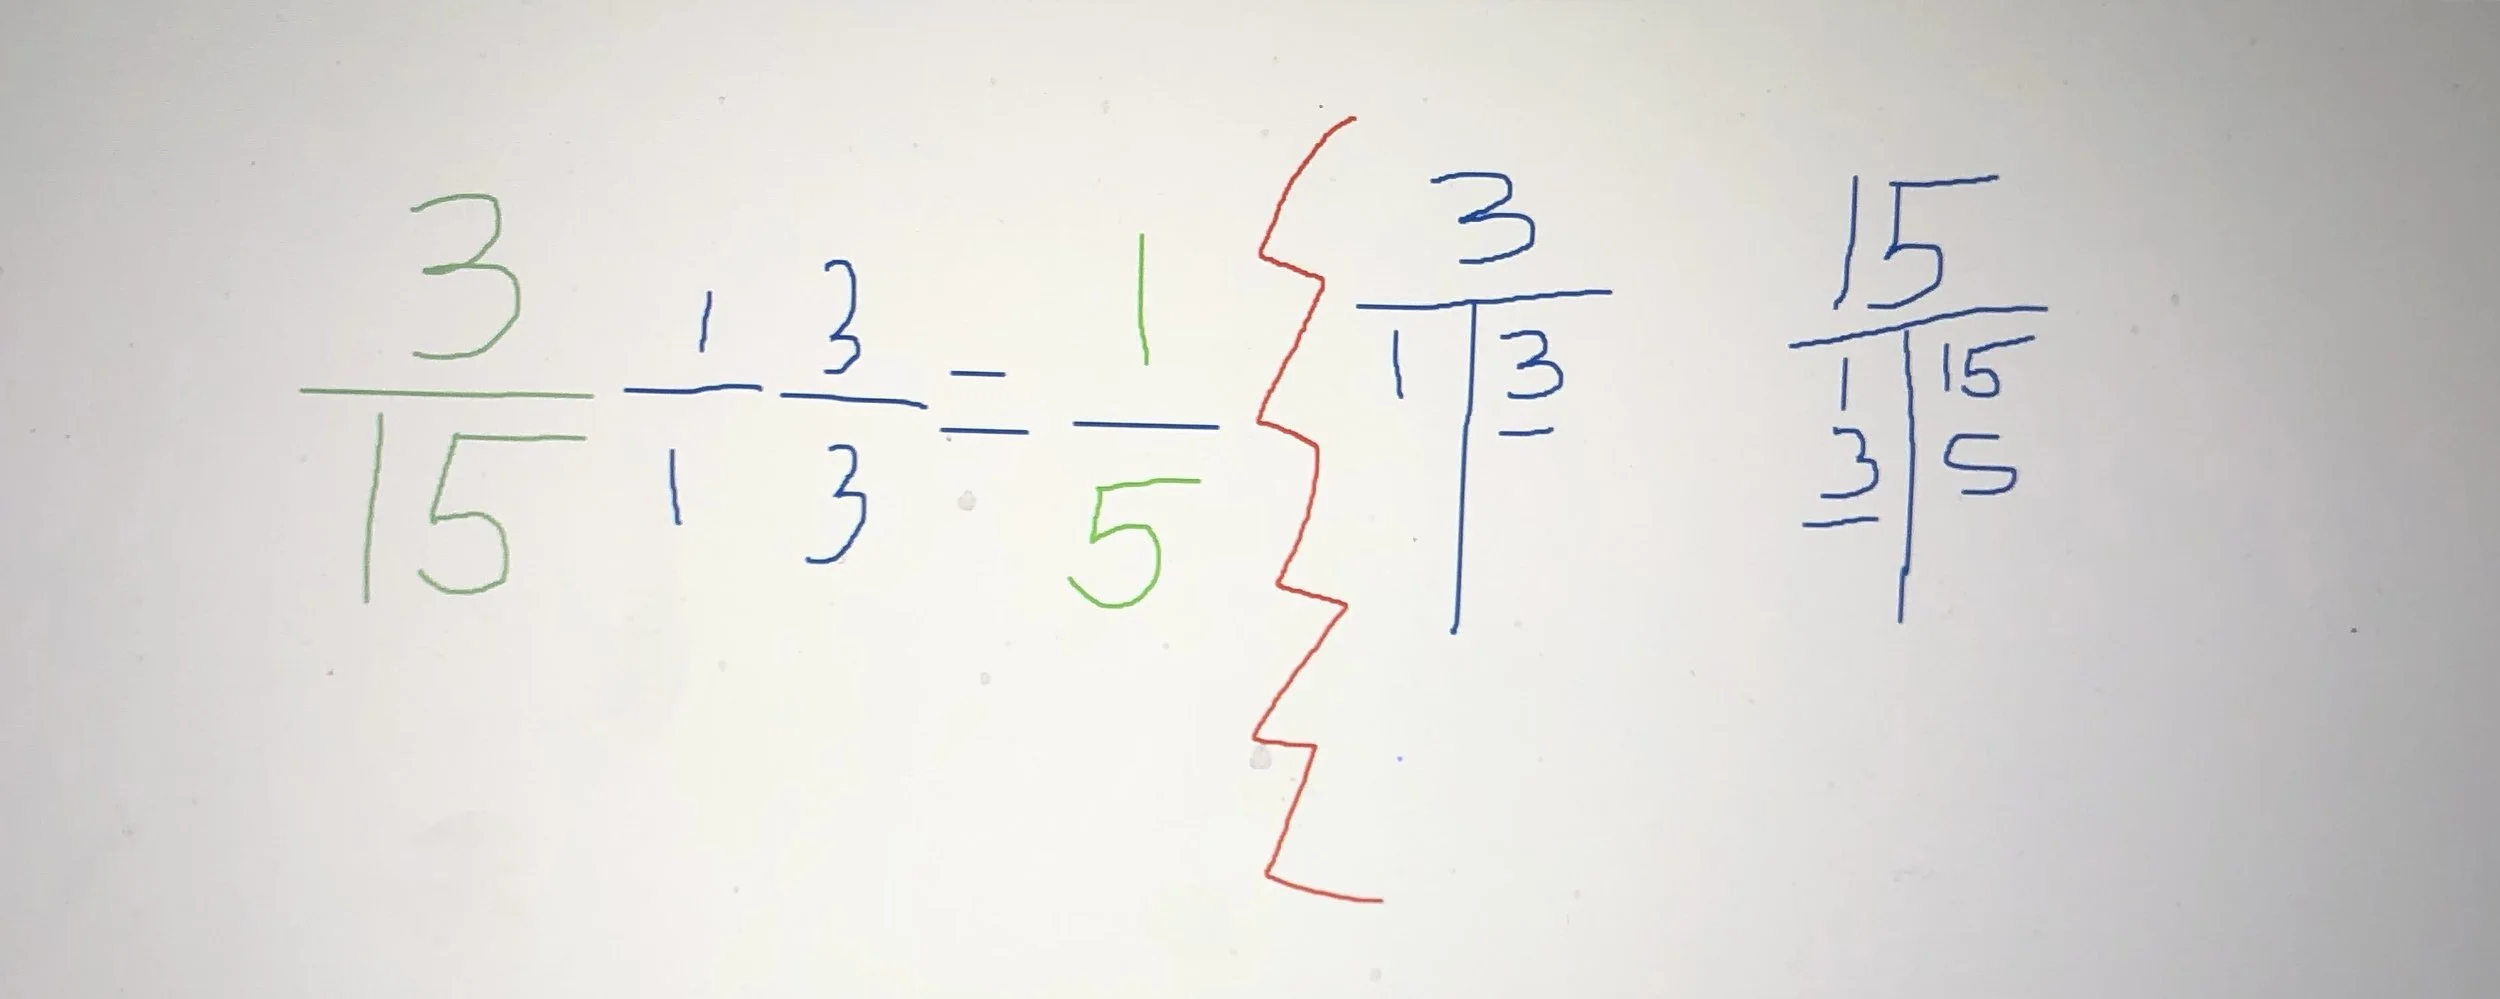 3/15 1/1 3/3 = 1/5
3
1 | 3
15
1 | 15
3 | 5